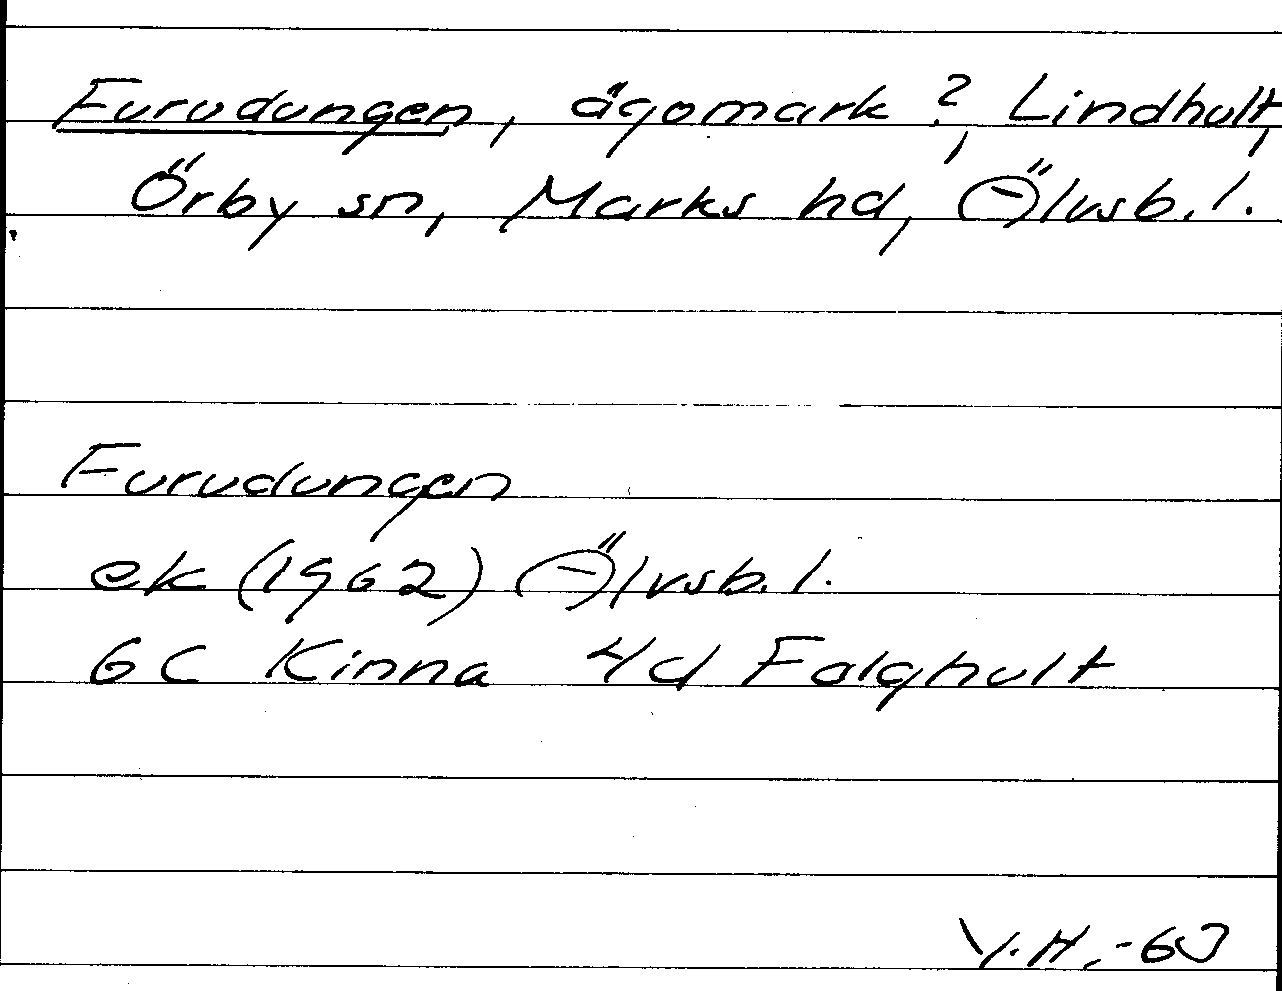 Furudungen, ägomark?, Lindhult,
Örby sn, Marks hd, Älvsb. l.
Furudungen
ek (1962) Älvsb. l.
6C Kinna 4d Falghult
Y.H. -63